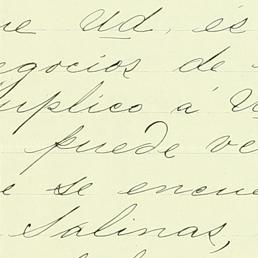 ue Ud, és
egocios de
uplico á V
puede ve
e se encue
Salinas,